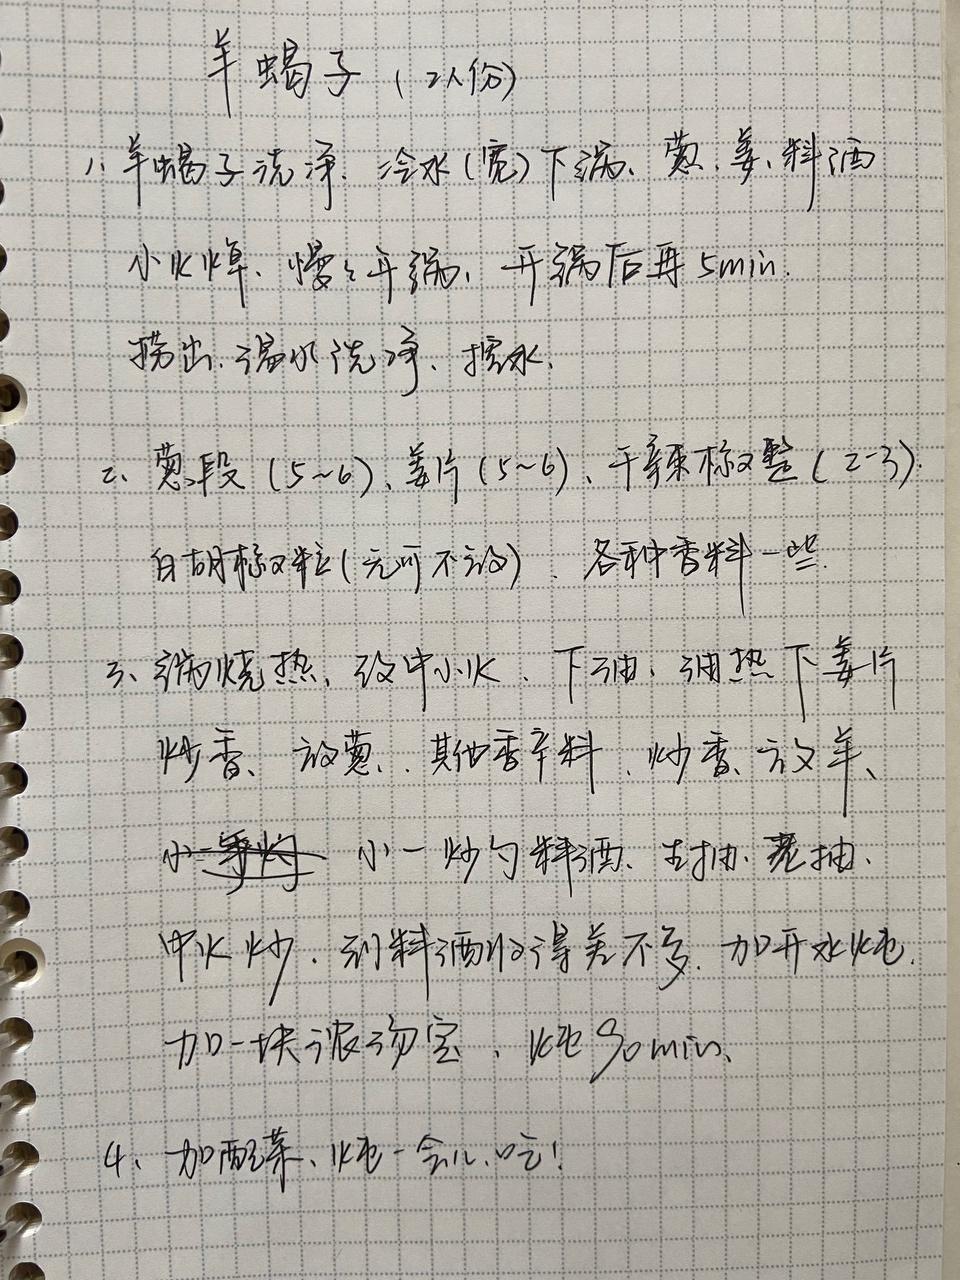 羊蝎子（2人份）
1、羊蝎子洗净、冷水（宽）下锅、葱、姜、料酒
小火焯、慢々开锅，开锅后再5min.
捞出、温水洗净、控水.
2、葱段（5~6）、姜片（5~6）、干辣椒整（2-3）.
白胡椒粒（无可不放）、各种香料一些.
3、锅烧热、改中小火、下油、油热下姜片
炒香、放葱、其他香辛料、炒香、放羊、
小一炒勺料酒、生抽、老抽.
中火炒、到料酒收得差不多、加开水炖.
加一块浓汤宝、炖90min、
4、加配菜、炖一会儿、吃！